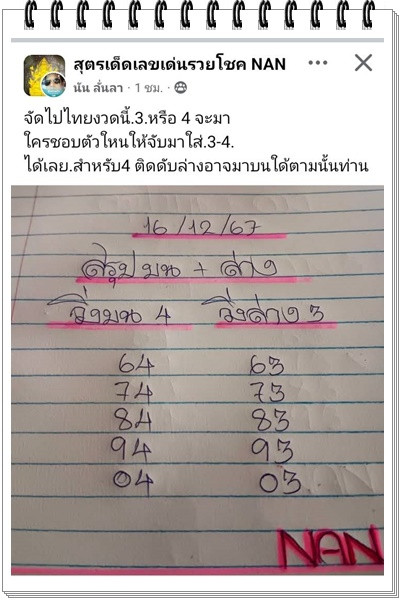 สูตรเด็ดเลขเด่นรวยโชค NAN
นัน ลั่นลา · 1 ชม. ·
จัดไปไทยงวดนี้.3.หรือ 4 จะมา
ใครชอบตัวใหนให้จับมาใส่.3-4.
ได้เลย.สำหรับ4 ติดดับล่างอาจมาบนใด้ตามนั้นท่าน
16/12/67
สรุป บน + ล่าง
วิ่งบน 4 วิ่งล่าง 3
64 63
74 73
84 83
94 93
04 03
NAN